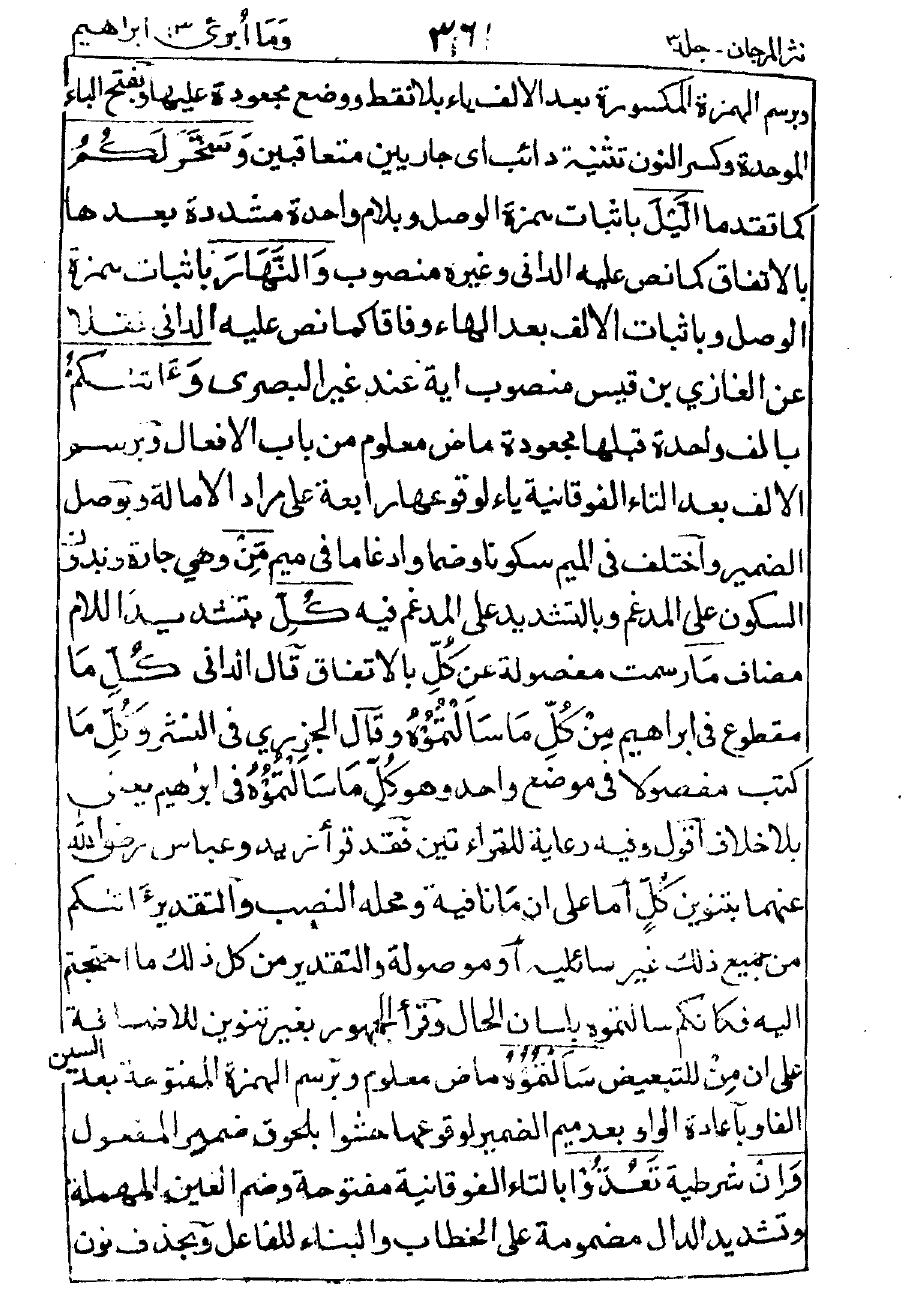 نثر المرجان - جلد ٣ ٣٦١ وَمَا أُبَرِّئُ ١٣: ابراهيم
وبرسم الهمزة المكسورة بعد الالف ياء بلا نقط ووضع مجعودة عليها وبفتح الباء
الموحدة وكسر النون تثنية دائب اى جاريين متعاقبين وَسَخَّرَ لَكُمُ
كما تقدما الَّيْلَ باثبات همزة الوصل وبلام واحدة مشددة بعدها
بالاتفاق كما نص عليه الدانى وغيره منصوب وَالنَّهَارَ باثبات همزة
الوصل وباثبات الالف بعد الهاء وفاقا كما نص عليه الدانى نقلا
عن الغازي بن قيس منصوب اية عند غير البصرى وَءَاتٰىكُمْ
بالف واحدة قبلها مجعودة ماض معلوم من باب الافعال وبرسم
الالف بعد التاء الفوقانية ياء لوقوعها رابعة على مراد الامالة وبوصل
الضمير واختلف فى الميم سكونا وضما وادغاما فى ميم مِّنْ وهي جارة وبدون
السكون على المدغم وبالتشديد على المدغم فيه كُلِّ بتشديد اللام
مضاف مَا رسمت مفصولة عن كُلِّ بالاتفاق قال الدانى كُلِّ مَا
مقطوع فى ابراهيم مِنْ كُلِّ مَا سَاَلْتُمُوْهُ وقال الجزري فى النشر وَكُلِّ مَا
كتب مفصولا فى موضع واحد وهو كُلِّ مَا سَاَلْتُمُوْهُ فى ابراهيم يعنى
بلا خلاف اقول وفيه رعاية للقراءتين فقد قرأ زيد وعباس رضي الله
عنهما بتنوين كُلٍّ اما على ان مَا نافية ومحله النصب والتقدير ءَاتٰىكم
من جميع ذلك غير سائليه او موصولة والتقدير من كل ذلك ما احتجتم
اليه فكانكم سالتموه بلسان الحال وقرأ الجمهور بغير تنوين للاضافة
على ان مِنْ للتبعيض سَاَلْتُمُوْهُ ماض معلوم وبرسم الهمزة المفتوحة بعد السين
الفا وباعادة الواو بعد ميم الضمير لوقوعها حشوا بلحوق ضمير المفعول
وَاِنْ شرطية تَعُدُّوْا بالتاء الفوقانية مفتوحة وضم العين المهملة
وتشديد الدال مضمومة على الخطاب والبناء للفاعل وبحذف نون